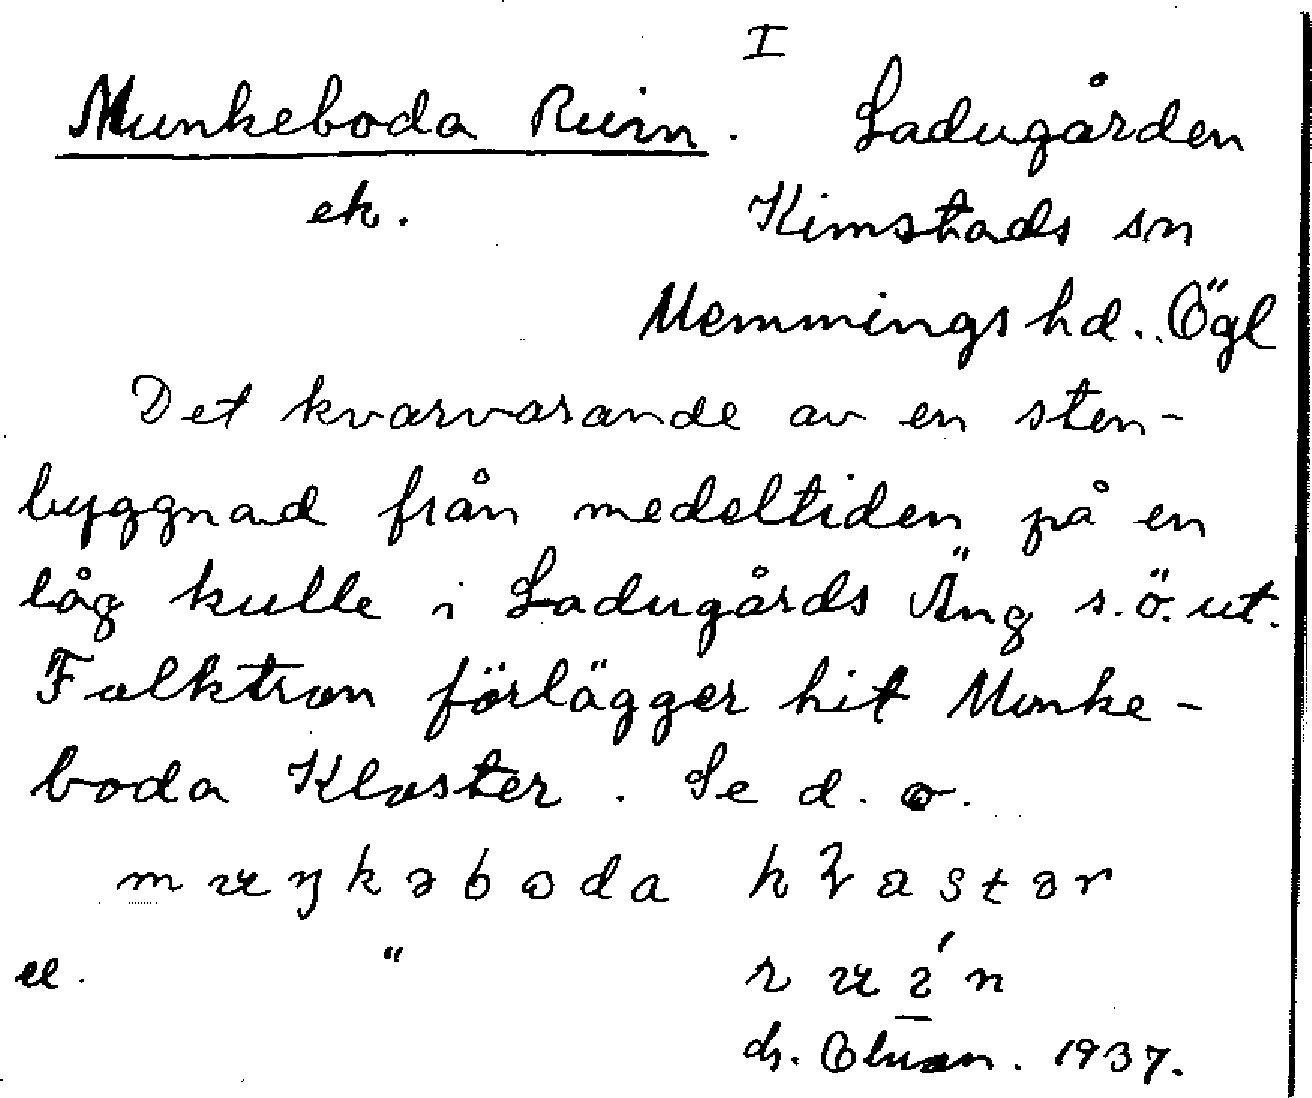 I
Munkeboda Ruin. Ladugården
ek. Kimstads sn
Memmings hd. Ögl
Det kvarvarande av en sten-
byggnad från medeltiden på en
låg kulle i Ladugårds Äng s.ö. ut.
Folktron förlägger hit Munke-
boda Kloster. Se d. o.
muŋkəboda
el. "
1937.